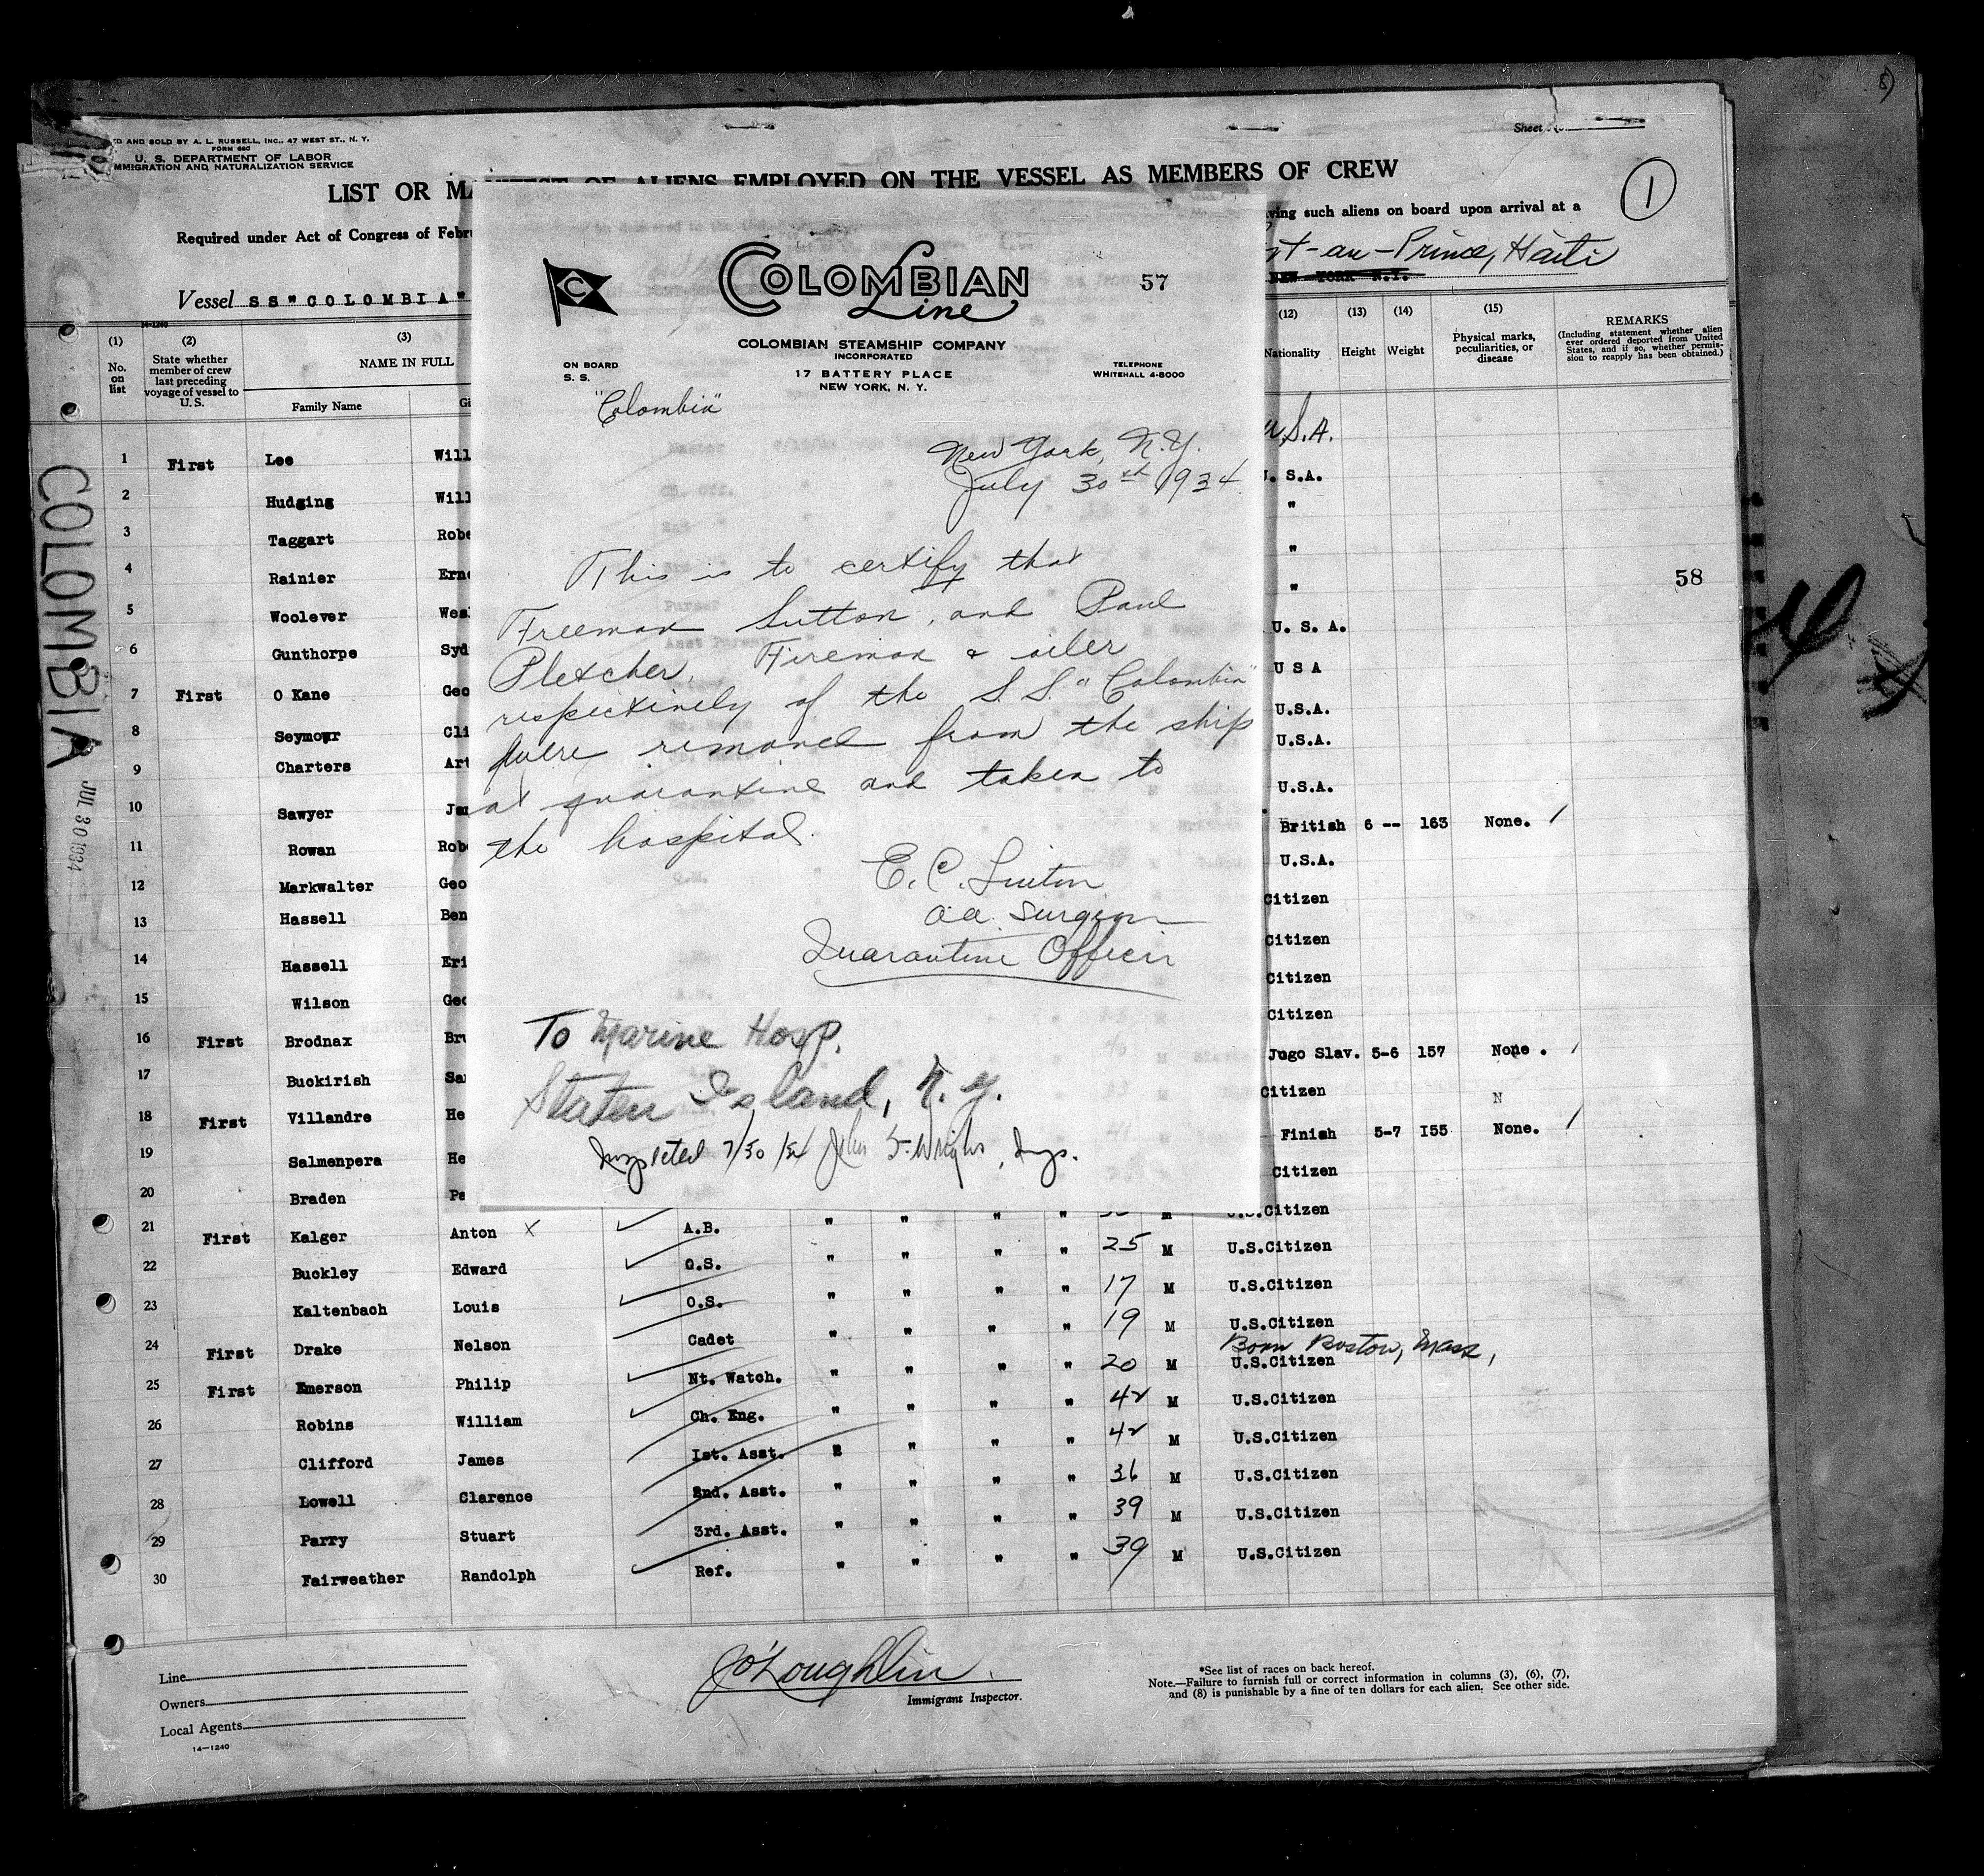 8)
Sheet No.
ED AND SOLD BY A. L. RUSSELL, INC., 47 WEST ST., N. Y.
FORM 660
U. S. DEPARTMENT OF LABOR
IMMIGRATION AND NATURALIZATION SERVICE
LIST OR MANIFEST OF ALIENS EMPLOYED ON THE VESSEL AS MEMBERS OF CREW
1
Required under Act of Congress of Febru
ving such aliens on board upon arrival at a
rt-au-Prince, Haiti
NEW YORK N.Y.
Vessel SS "COLOMBIA"
14-1240
(1) (2) (3) (12) (13) (14) (15)
No. on list
State whether member of crew last preceding voyage of vessel to U. S.
NAME IN FULL
Family Name Gi
Nationality Height Weight
Physical marks, peculiarities, or disease
REMARKS
(Including statement whether alien ever ordered deported from United States, and if so, whether permission to reapply has been obtained.)
C
COLOMBIAN
Line
57
COLOMBIAN STEAMSHIP COMPANY
INCORPORATED
17 BATTERY PLACE
NEW YORK, N. Y.
ON BOARD
S. S.
TELEPHONE
WHITEHALL 4-8000
"Colombia"
New York, N.Y.
July 30th 1934
This is to certify that
Freeman Sutton, and Paul
Pletcher, Fireman & oiler
respectively of the S.S. "Colombia"
were removed from the ship
at quarantine and taken to
the hospital.
E. C.
a a Surgeon
Quarantine Officer
To Marine Hosp.
Staten Island, N. Y.
Inspected 7/30/34 John Wright, Insp.
COLOMBIA
JUL 30 1934
58
U.S.A.
1 First Lee Will U. S.A.
2 Hudging Will "
3 Taggart Robe "
4 Rainier Erne "
5 Woolever Wes U. S. A.
6 Gunthorpe Syd U S A
7 First O Kane Geo U.S.A.
8 Seymour Cli U.S.A.
9 Charters Art U.S.A.
10 Sawyer Jam British 6 -- 163 None. /
11 Rowan Rob U.S.A.
12 Markwalter Geo Citizen
13 Hassell Ben Citizen
14 Hassell Eri Citizen
15 Wilson Geo Citizen
16 First Brodnax Bru Jugo Slav. 5-6 157 None. /
17 Buckirish Sa Citizen
N
18 First Villandre He Finish 5-7 I55 None. /
19 Salmenpera He Citizen
20 Braden Pa U.S.Citizen
21 First Kalger Anton X A.B. " " " " 25 M U.S.Citizen
22 Buckley Edward O.S. " " " " 17 M U.S.Citizen
23 Kaltenbach Louis O.S. " " " " 19 M U.S.Citizen
Born Boston, Mass,
24 First Drake Nelson Cadet " " " " 20 M U.S.Citizen
25 First Emerson Philip Nt. Watch. " " " " 42 M U.S.Citizen
26 Robins William Ch. Eng. " " " " 42 M U.S.Citizen
27 Clifford James Ist. Asst. " " " " 36 M U.S.Citizen
28 Lowell Clarence 2nd. Asst. " " " " 39 M U.S.Citizen
29 Parry Stuart 3rd. Asst. " " " " 39 M U.S.Citizen
30 Fairweather Randolph Ref. " " " "
Line
Owners
Local Agents
14-1240
J O'Loughlin
Immigrant Inspector.
*See list of races on back hereof.
Note.—Failure to furnish full or correct information in columns (3), (6), (7),
and (8) is punishable by a fine of ten dollars for each alien. See other side.